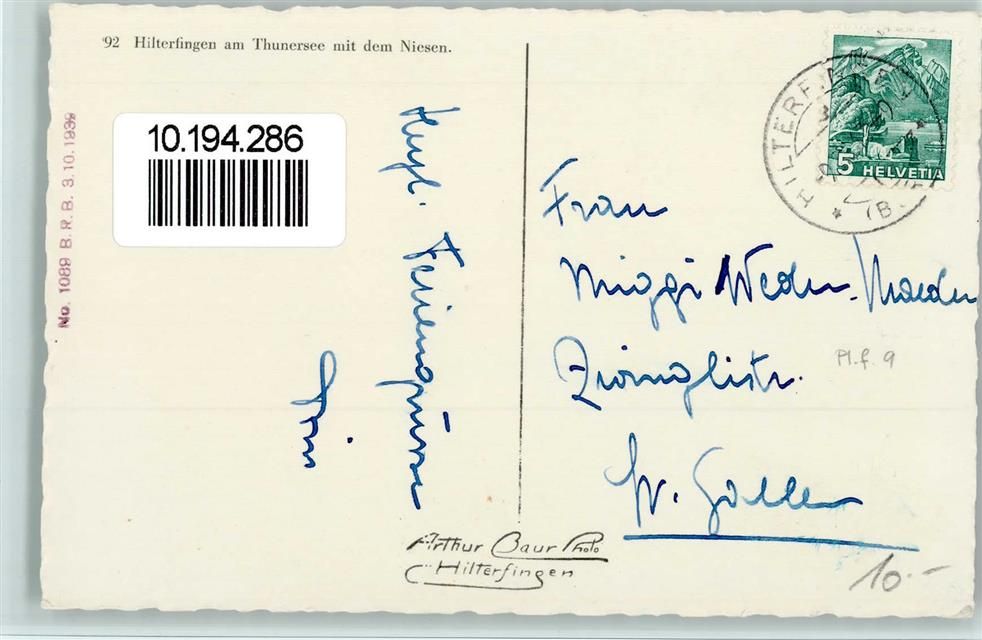 92 Hilterfingen am Thunersee mit dem Niesen.
No. 1089 B. R. B. 3.10.1939
10.194.286
Herzl. Feriengrüsse
5 HELVETIA
HILTERFINGEN
(B.
Frau
Miggi Weder-
Zwinglistr.
St. Gallen
Pl.f. 9
Arthur Baur Photo
Hilterfingen
10.-